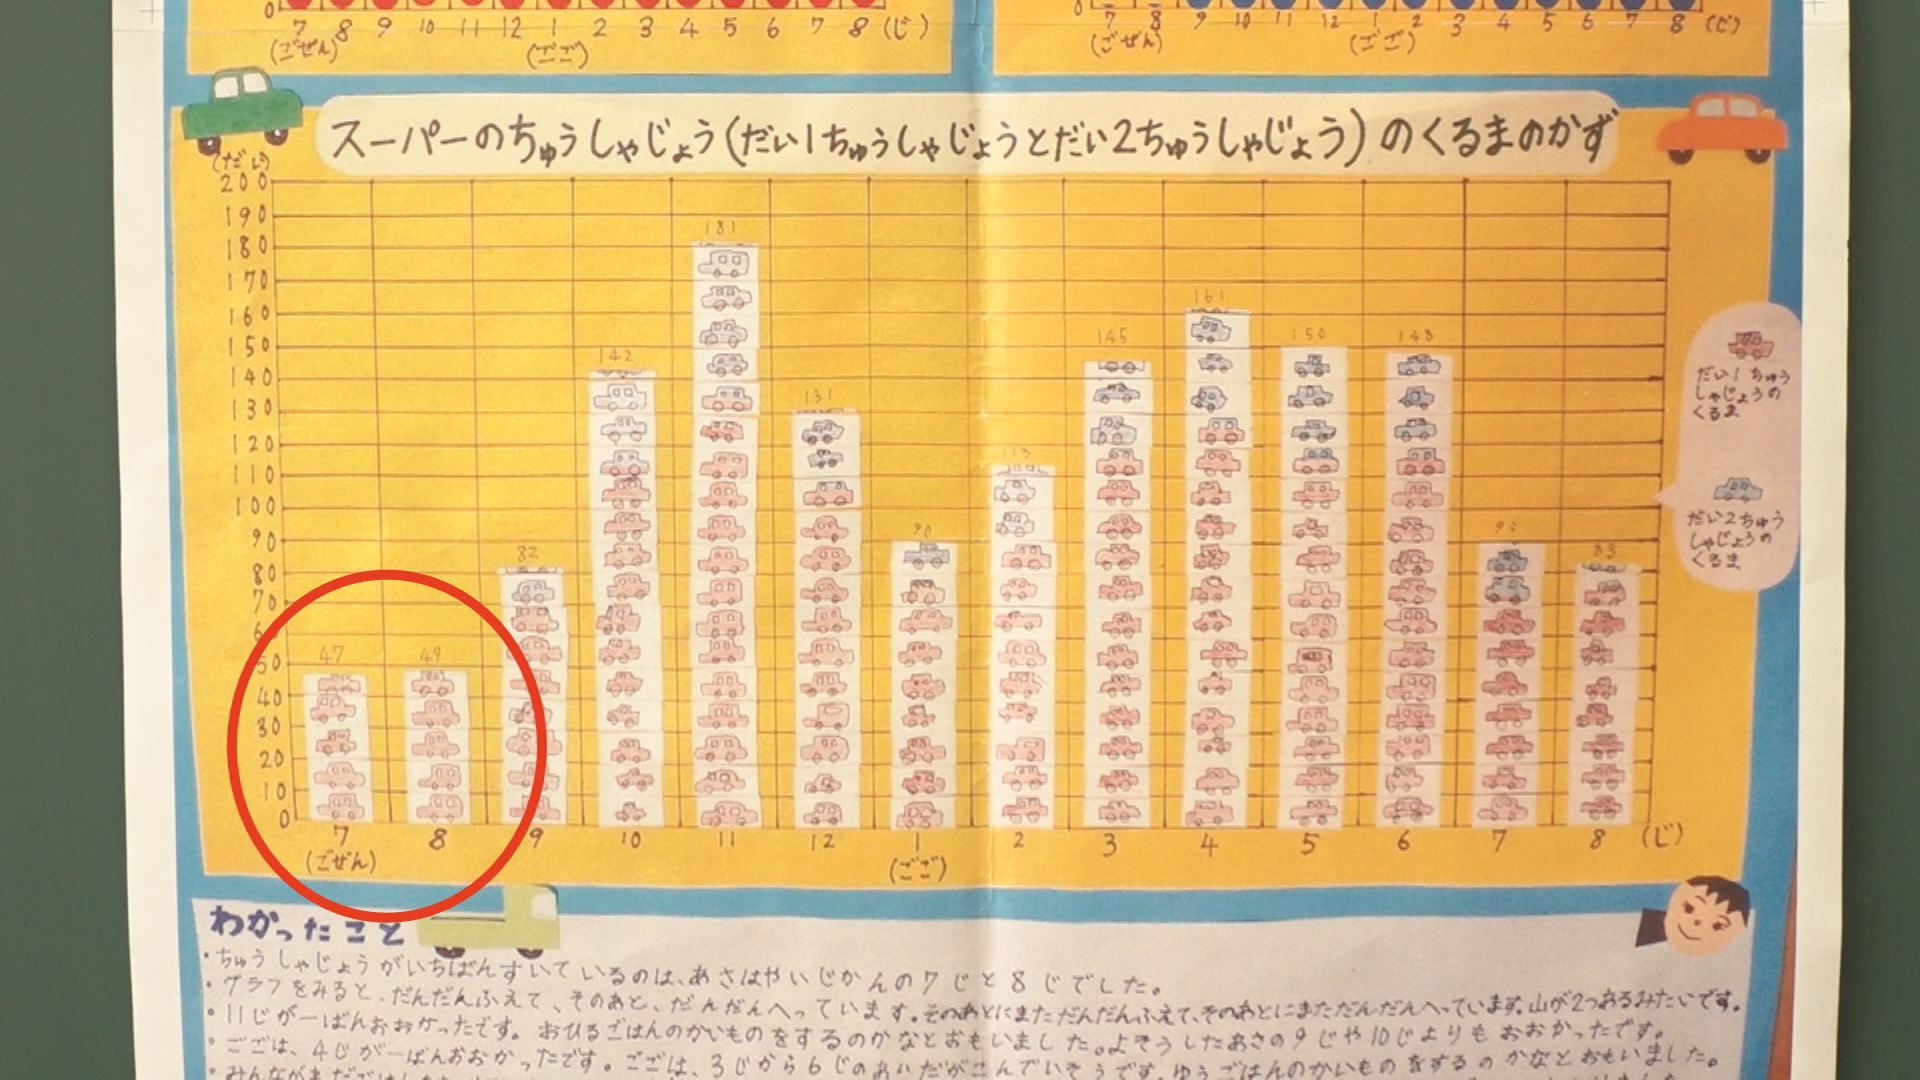 0
7 8 9 10 11 12 1 2 3 4 5 6 7 8 (じ)
(ごぜん) (ごご)
0
7 8 9 10 11 12 1 2 3 4 5 6 7 8 (じ)
(ごぜん) (ごご)
スーパーのちゅうしゃじょう(だい1ちゅうしゃじょうとだい2ちゅうしゃじょう)のくるまのかず
(だい)
200
190
180
170
160
150
140
130
120
110
100
90
80
70
6
50
40
30
20
10
0
47 49 82 142 181 131 90 113 145 161 150 148 83
7 8 9 10 11 12 1 2 3 4 5 6 7 8 (じ)
(ごぜん) (ごご)
だい1ちゅう
しゃじょうの
くるま
だい2ちゅう
しゃじょうの
くるま
わかったこと
・ちゅうしゃじょうがいちばんすいているのは、あさはやいじかんの7じと8じでした。
・グラフをみると、だんだんふえて、そのあと、だんだんへっています。そのあとにまただんだんふえて、そのあとにまただんだんへっています。山が2つあるみたいです。
・11じが一ばんおおかったです。おひるごはんのかいものをするのかなとおもいました。よそうしたあさの9じや10じよりもおおかったです。
・ごごは、4じが一ばんおおかったです。ごごは、3じから6じのあいだがこんでいそうです。ゆうごはんのかいものをするのかなとおもいました。